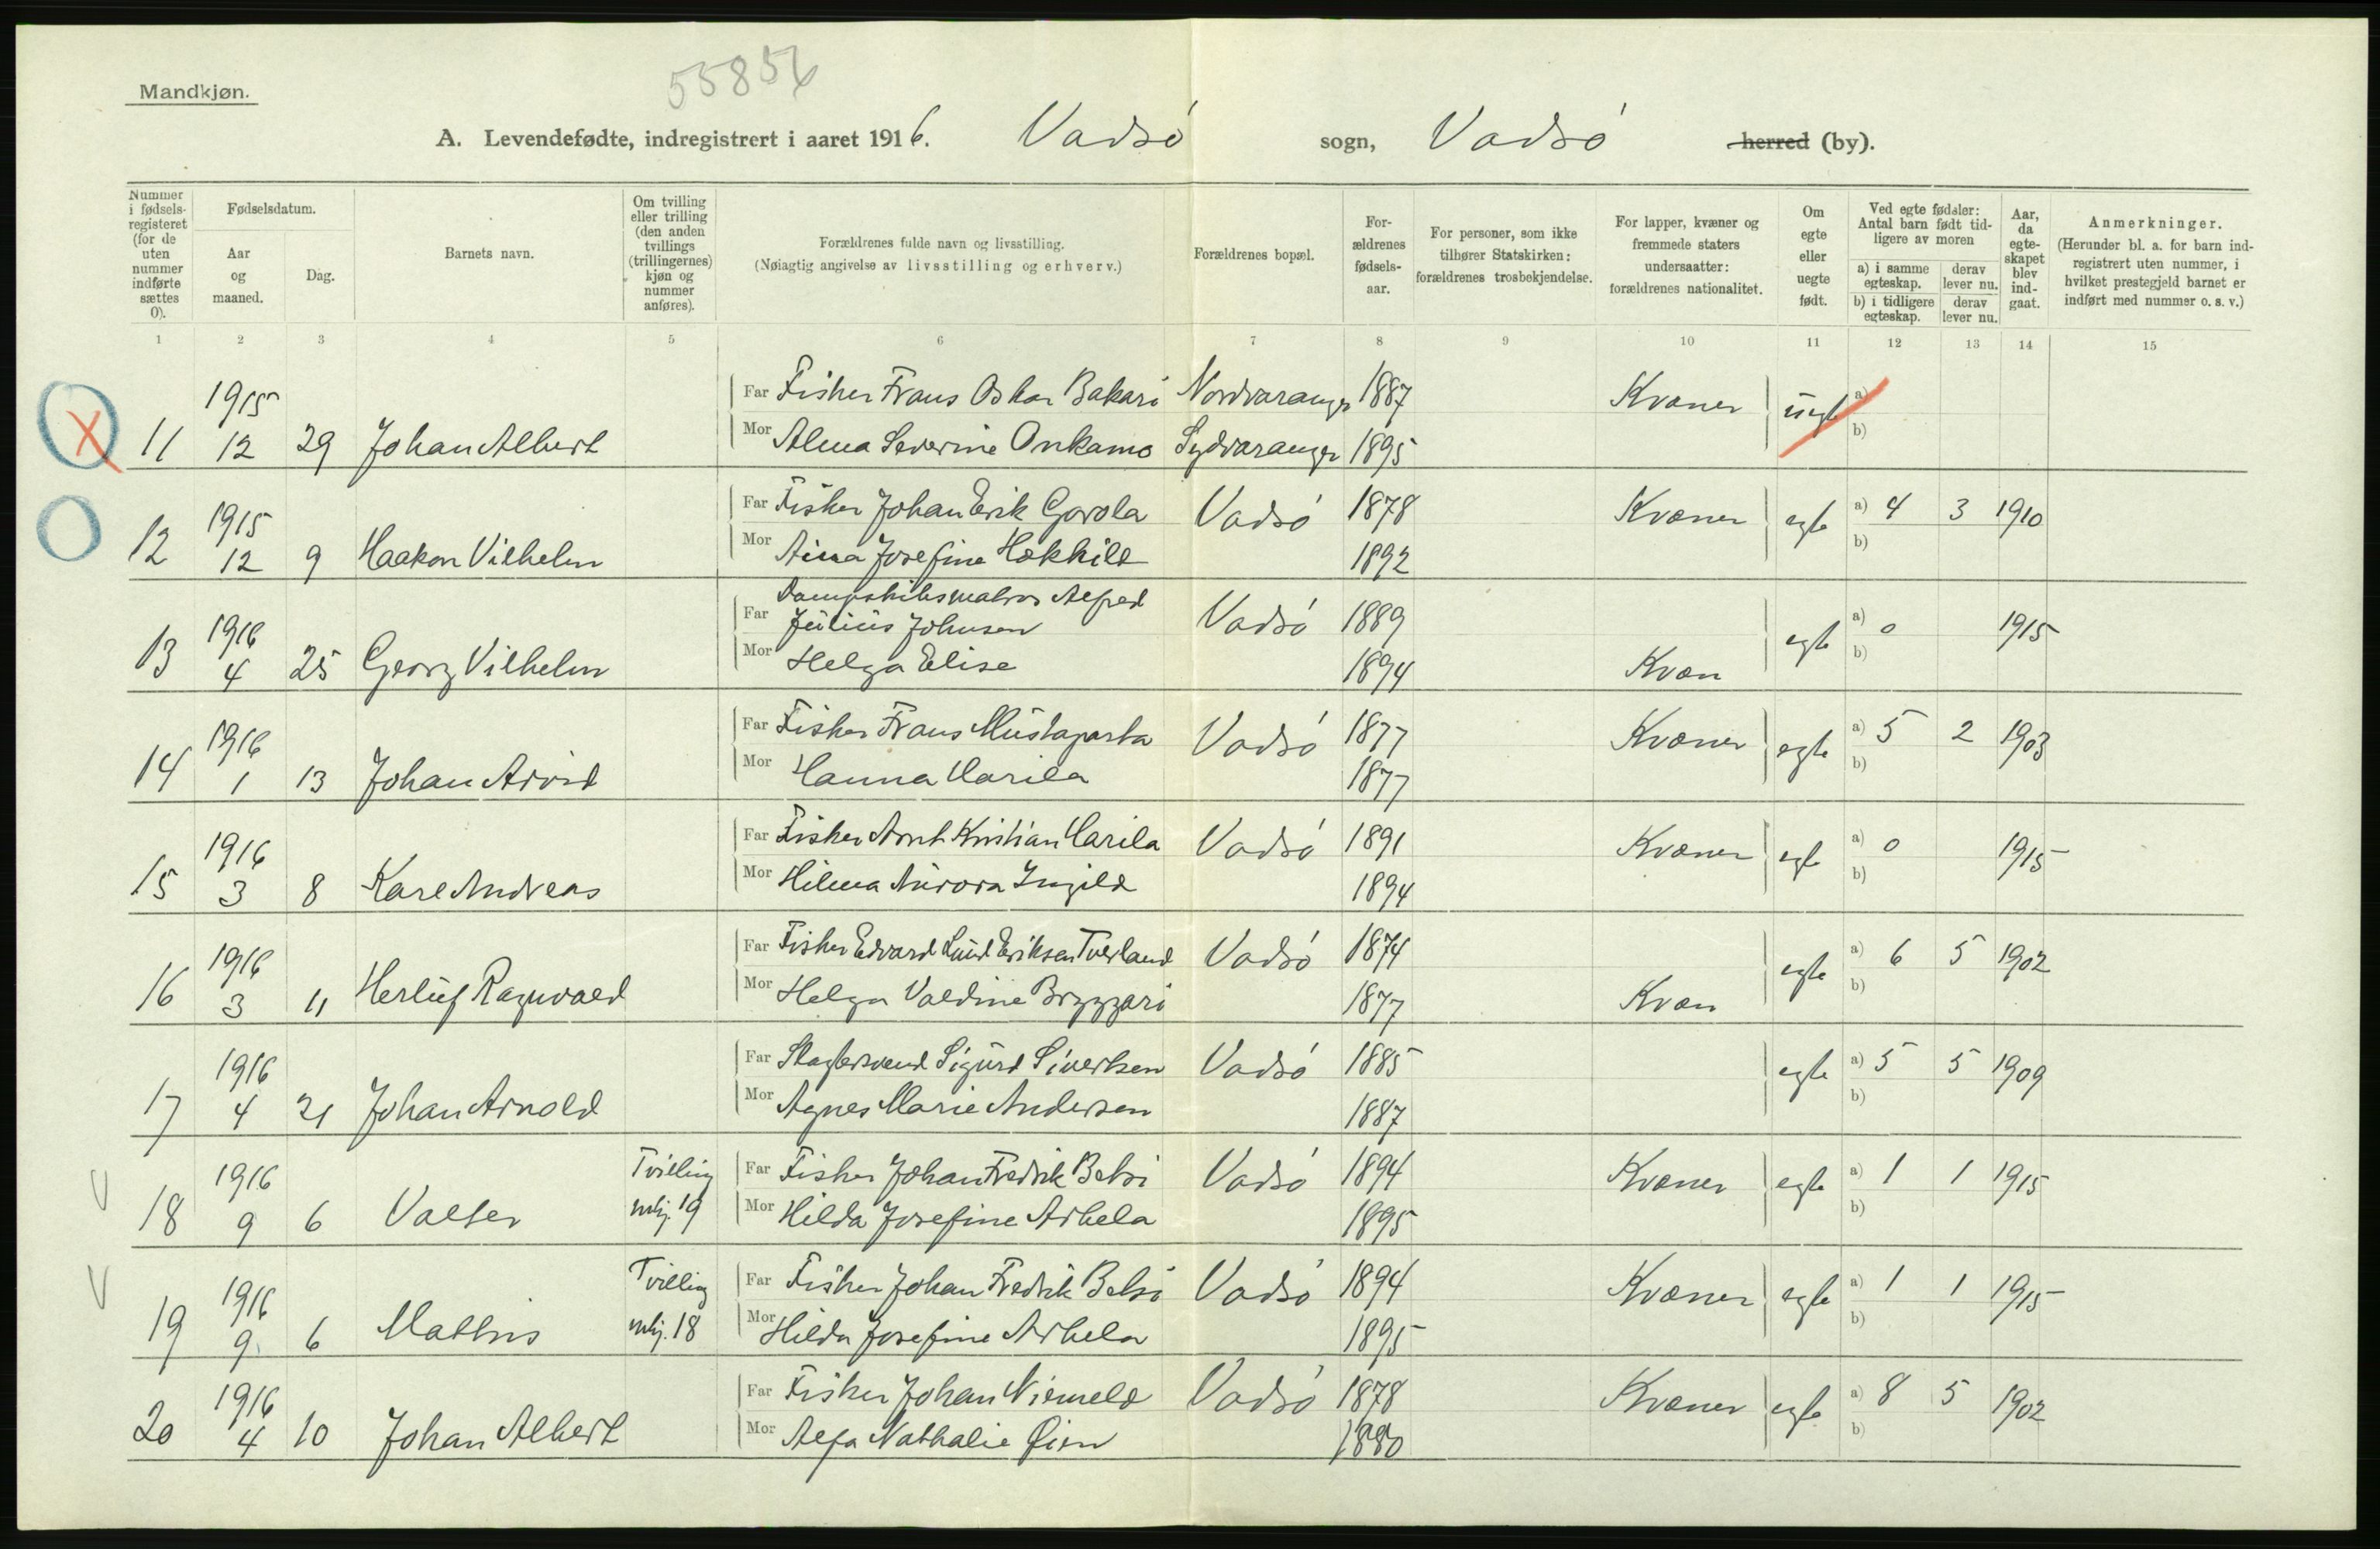 55856
Mandkjøn.
A. Levendefødte, indregistrert i aaret 1916. Vadsø sogn, Vadsø herred (by).
Nummer i fødselsregisteret (for de uten nummer indførte sættes 0).
Fødselsdatum.
Aar og maaned.
Dag.
Barnets navn.
Om tvilling eller trilling (den anden tvillings (trillingernes) kjøn og nummer anføres).
Forældrenes fulde navn og livsstilling.
(Nøiagtig angivelse av livsstilling og erhverv.)
Forældrenes bopæl.
Forældrenes fødselsaar.
For personer, som ikke tilhører Statskirken: forældrenes trosbekjendelse.
For lapper, kvæner og fremmede staters undersaatter: forældrenes nationalitet.
Om egte eller uegte født.
Ved egte fødsler: Antal barn født tidligere av moren
a) i samme egteskap. derav lever nu.
b) i tidligere egteskap. derav lever nu.
Aar, da egteskapet blev indgaat.
Anmerkninger.
(Herunder bl. a. for barn indregistrert uten nummer, i hvilket prestegjeld barnet er indført med nummer o. s. v.)
1 2 3 4 5 6 7 8 9 10 11 12 13 14 15
X 1915 Far Fisker Frans Oskar Bakari Nordvaranger 1887 Kvæner uegte a)
11 12 29 Johan Albert Mor Alma Severine Onkamo Sydvaranger 1895 b)
1915 Far Fisker Johan Erik Gorola Vadsø 1878 Kvæner egte a) 4 3 1910
12 12 9 Haakon Vilhelm Mor Aina Josefine Hokkild 1892 b)
Dampskibsmatros Alfred
1916 Far Julius Johnsen Vadsø 1889 egte a) 0 1915
13 4 25 Georg Vilhelm Mor Helga Elise 1894 Kvæn b)
1916 Far Fisker Frans Mustaparta Vadsø 1877 Kvæner egte a) 5 2 1903
14 1 13 Johan Arvid Mor Hanna Harila 1877 b)
1916 Far Fisker Arnt Kristian Harila Vadsø 1891 Kvæner egte a) 0 1915
15 3 8 Karl Andreas Mor Hilma Aurora Ingild 1894 b)
1916 Far Fisker Edvard Lund Eriksen Tverland Vadsø 1874 egte a) 6 5 1902
16 3 11 Herluf Ragnvald Mor Helga Valdine Bryggari 1877 Kvæn b)
1916 Far Slagtersvend Sigurd Sivertsen Vadsø 1885 egte a) 5 5 1909
17 4 21 Johan Arnold Mor Agnes Marie Andersen 1887 b)
V 1916 Tvilling Far Fisker Johan Fredrik Belsi Vadsø 1894 Kvæner egte a) 1 1 1915
18 9 6 Valter mkj. 19 Mor Hilda Josefine Arhela 1895 b)
V 1916 Tvilling Far Fisker Johan Fredrik Belsi Vadsø 1894 Kvæner egte a) 1 1 1915
19 9 6 Mathis mkj. 18 Mor Hilda Josefine Arhela 1895 b)
1916 Far Fisker Johan Niemela Vadsø 1878 Kvæner egte a) 8 5 1902
20 4 10 Johan Albert Mor Alfa Nathalie Øien 1880 b)